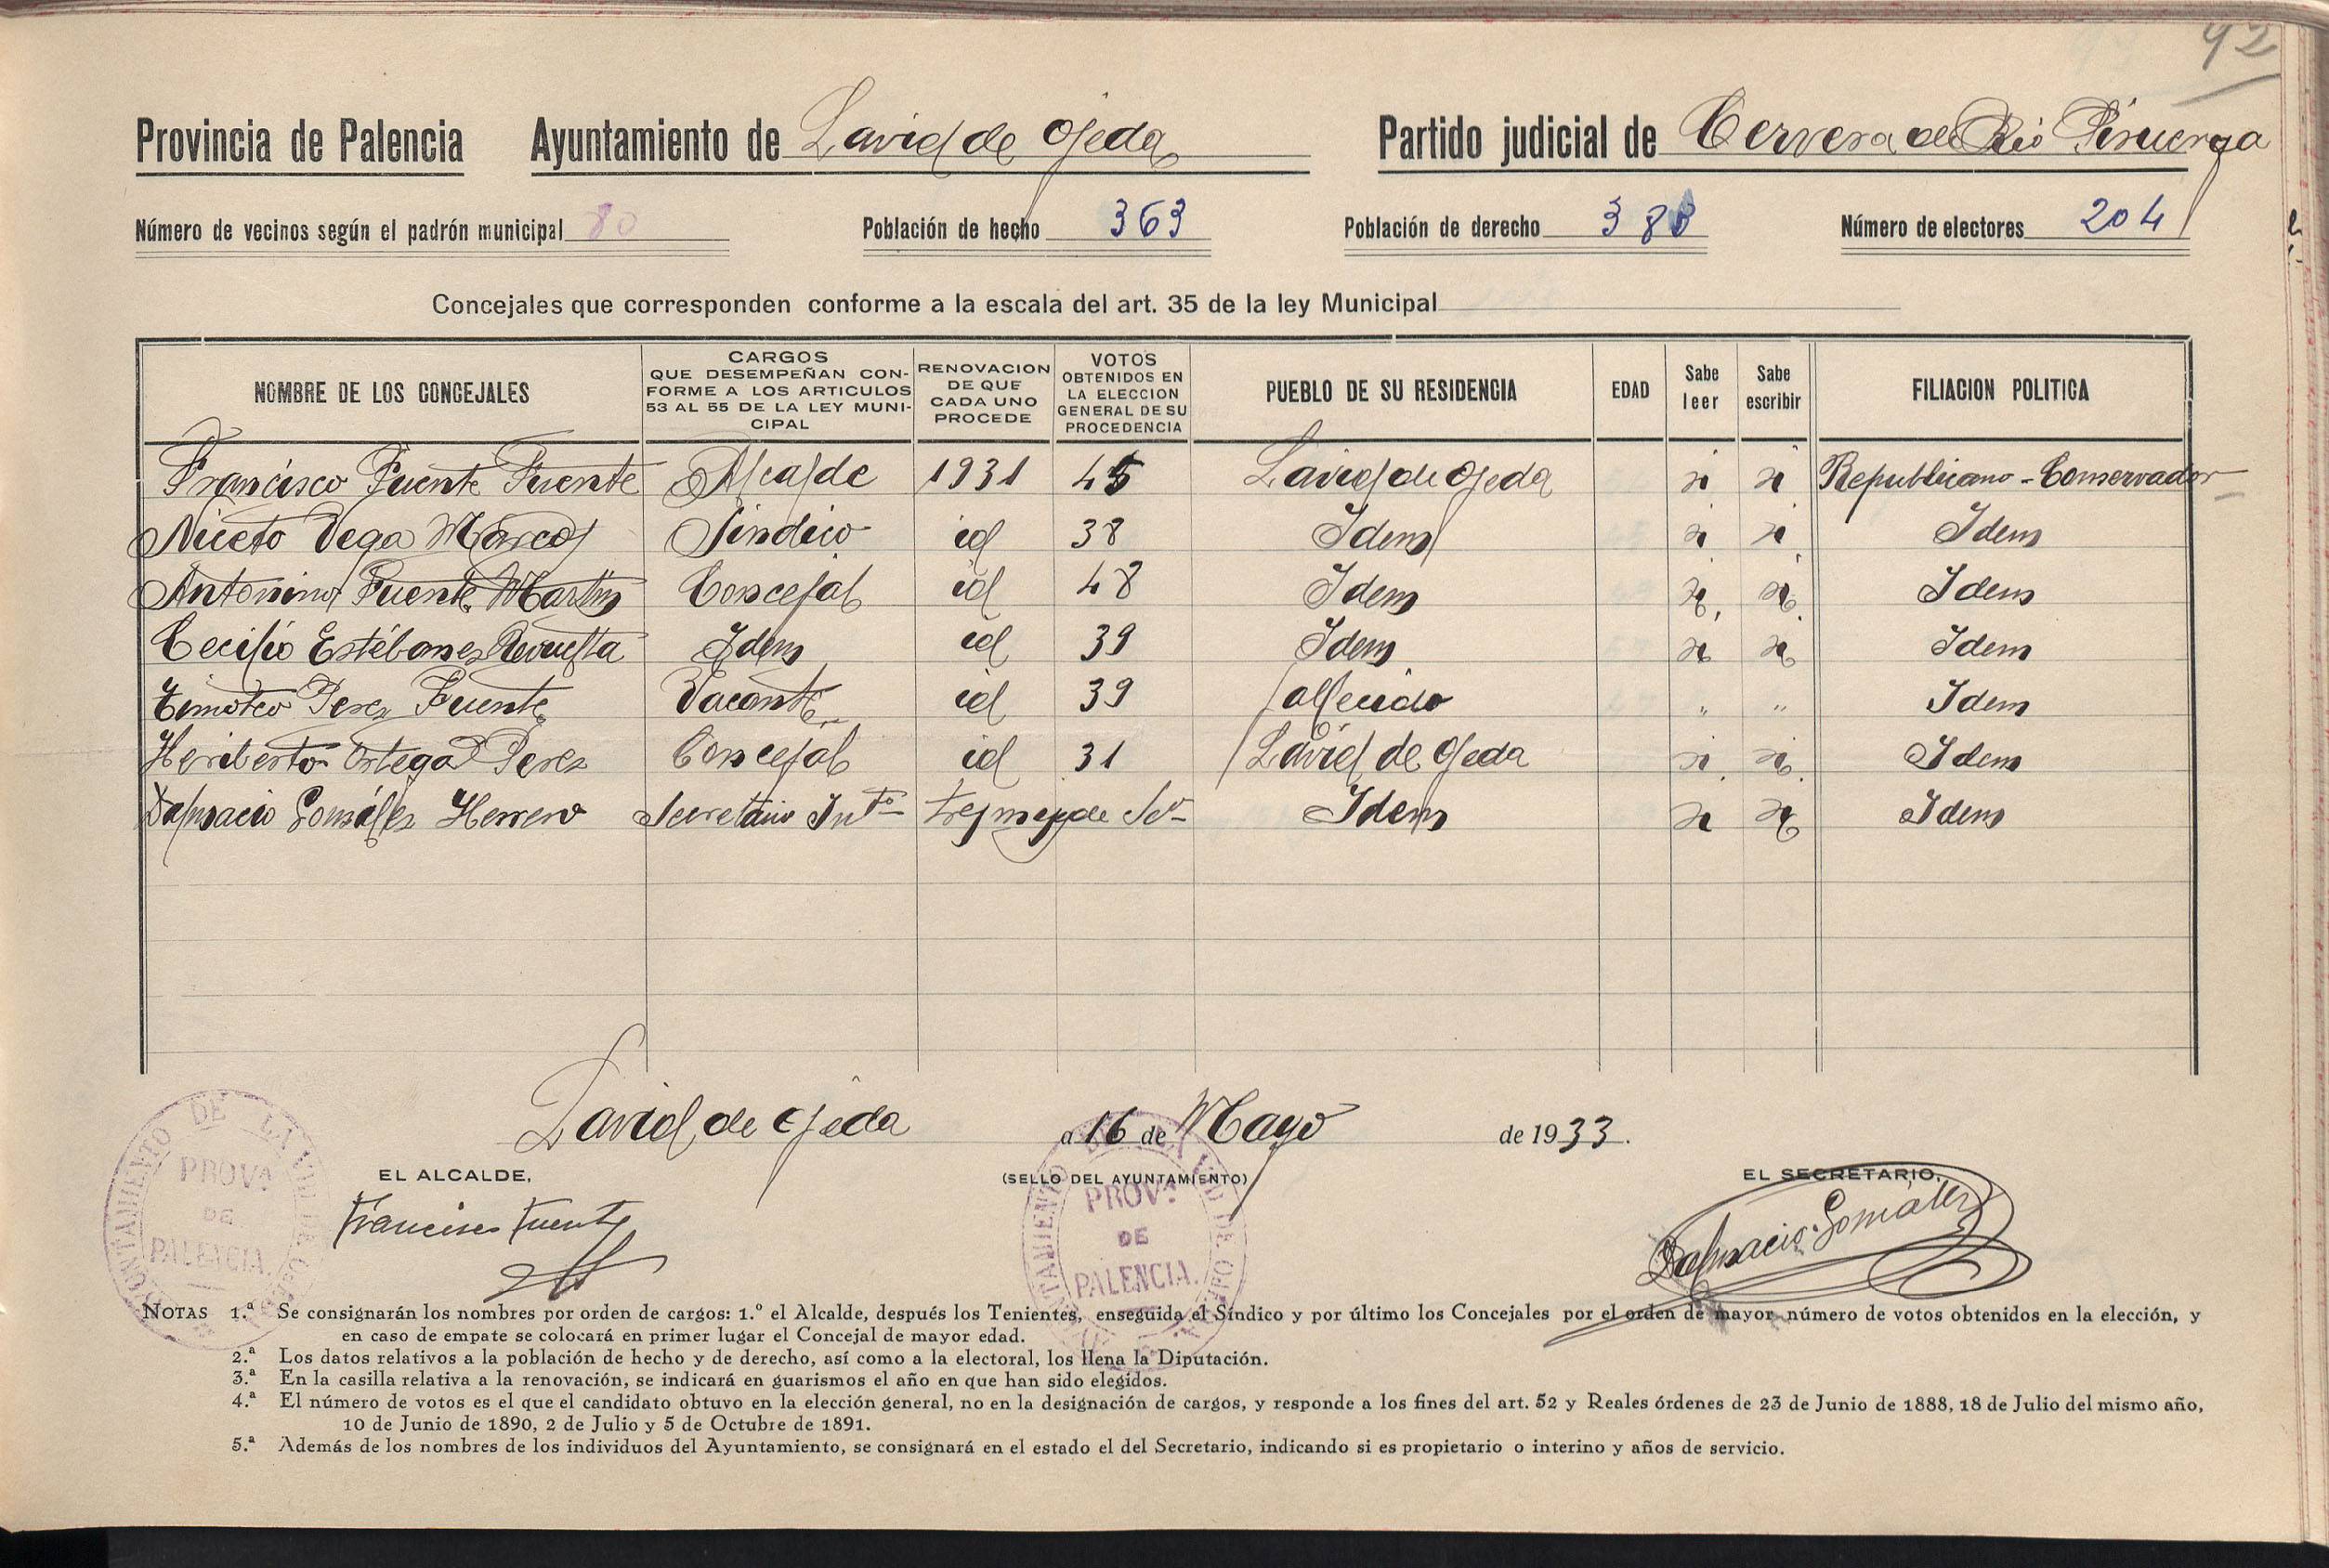 92
Provincia de Palencia Ayuntamiento de Lavid de Ojeda Partido judicial de Cervera de Rio Pisuerga
Número de vecinos según el padrón municipal 80 Población de hecho 363 Población de derecho 383 Número de electores 204
Concejales que corresponden conforme a la escala del art. 35 de la ley Municipal
NOMBRE DE LOS CONCEJALES
CARGOS
QUE DESEMPEÑAN CON-
FORME A LOS ARTICULOS
53 AL 55 DE LA LEY MUNI-
CIPAL
RENOVACION
DE QUE
CADA UNO
PROCEDE
VOTOS
OBTENIDOS EN
LA ELECCION
GENERAL DE SU
PROCEDENCIA
PUEBLO DE SU RESIDENCIA
EDAD
Sabe
leer
Sabe
escribir
FILIACION POLITICA
Francisco Fuente Fuente Alcalde 1931 45 Lavid de Ojeda si si Republicano-Conservador
Niceto Vega Marcos Sindico id 38 Idem si si Idem
Antonino Fuente Martin Concejal id 48 Idem si si Idem
Cecilio Estébanez Revuelta Idem id 39 Idem si si Idem
Timoteo Perez Fuente Vacante id 39 fallecido " " Idem
Heriberto Ortega Perez Concejal id 31 Lavid de Ojeda si si Idem
Dalmacio González Herrero Secretario Intº tres meses de Idem si si Idem
Lavid de Ojeda a 16 de Mayo de 1933.
EL ALCALDE, (SELLO DEL AYUNTAMIENTO) EL SECRETARIO,
Francisco Fuente
Dalmacio Gonzalez
AYUNTAMIENTO DE LA VID DE OJEDA
PROVA
DE
PALENCIA.
AYUNTAMIENTO DE LA VID DE OJEDA
PROVA
DE
PALENCIA.
NOTAS 1.ª Se consignarán los nombres por orden de cargos: 1.º el Alcalde, después los Tenientes, enseguida el Síndico y por último los Concejales por el orden de mayor número de votos obtenidos en la elección, y
en caso de empate se colocará en primer lugar el Concejal de mayor edad.
2.ª Los datos relativos a la población de hecho y de derecho, así como a la electoral, los llena la Diputación.
3.ª En la casilla relativa a la renovación, se indicará en guarismos el año en que han sido elegidos.
4.ª El número de votos es el que el candidato obtuvo en la elección general, no en la designación de cargos, y responde a los fines del art. 52 y Reales órdenes de 23 de Junio de 1888, 18 de Julio del mismo año,
10 de Junio de 1890, 2 de Julio y 5 de Octubre de 1891.
5.ª Además de los nombres de los individuos del Ayuntamiento, se consignará en el estado el del Secretario, indicando si es propietario o interino y años de servicio.